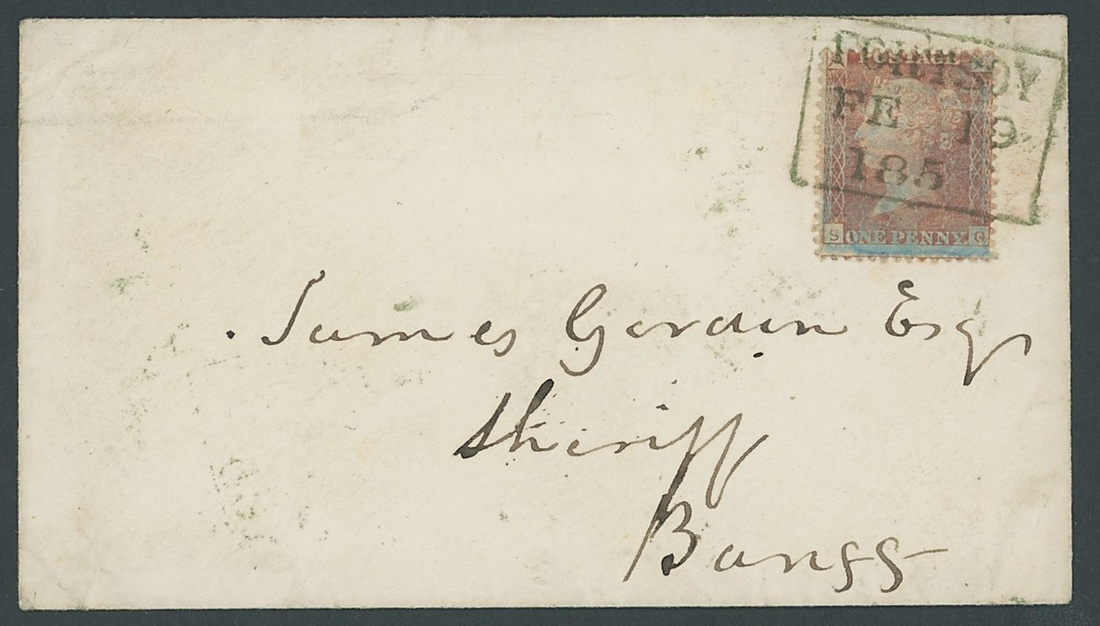 POSTAGE
PORTSOY
FE 19
185
S ONE PENNY. G
James Gordon Esqr
Sheriff
Banff